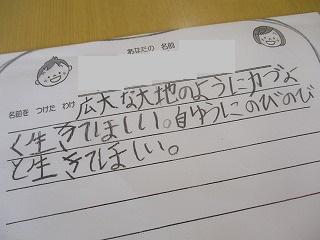 あなたの 名前
名前を つけた わけ
広大な大地のように力づよ
く生きてほしい。自ゆうにのびのび
と生きてほしい。